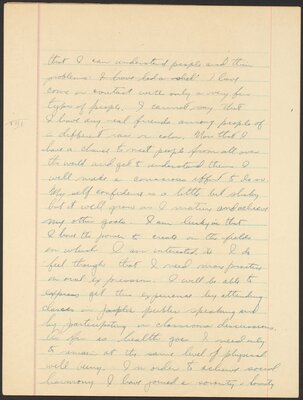 that I can understand people and their
problems. I have had a I have
come in contact with only a very few
types of people. I cannot say that
I have any real friends among people of
a different race or color. Now that I
have a chance to meet people from all over
the world and get to understand them I
will make a conscious effort to do so.
My self confidence is a little bit shaky
but it will grow as I mature and achieve
my other goals. I am lucky in that
I have the power to create in the fields
in which I am interested in. I do
feel though that I need more practice
in oral expression. I will be able to
express get this experience by attending
classes in public speaking and
by participating in classroom discussions.
As far as health goes I need only
to remain at the same level of physical
well being. In order to achieve social
harmony I have joined a sorority a